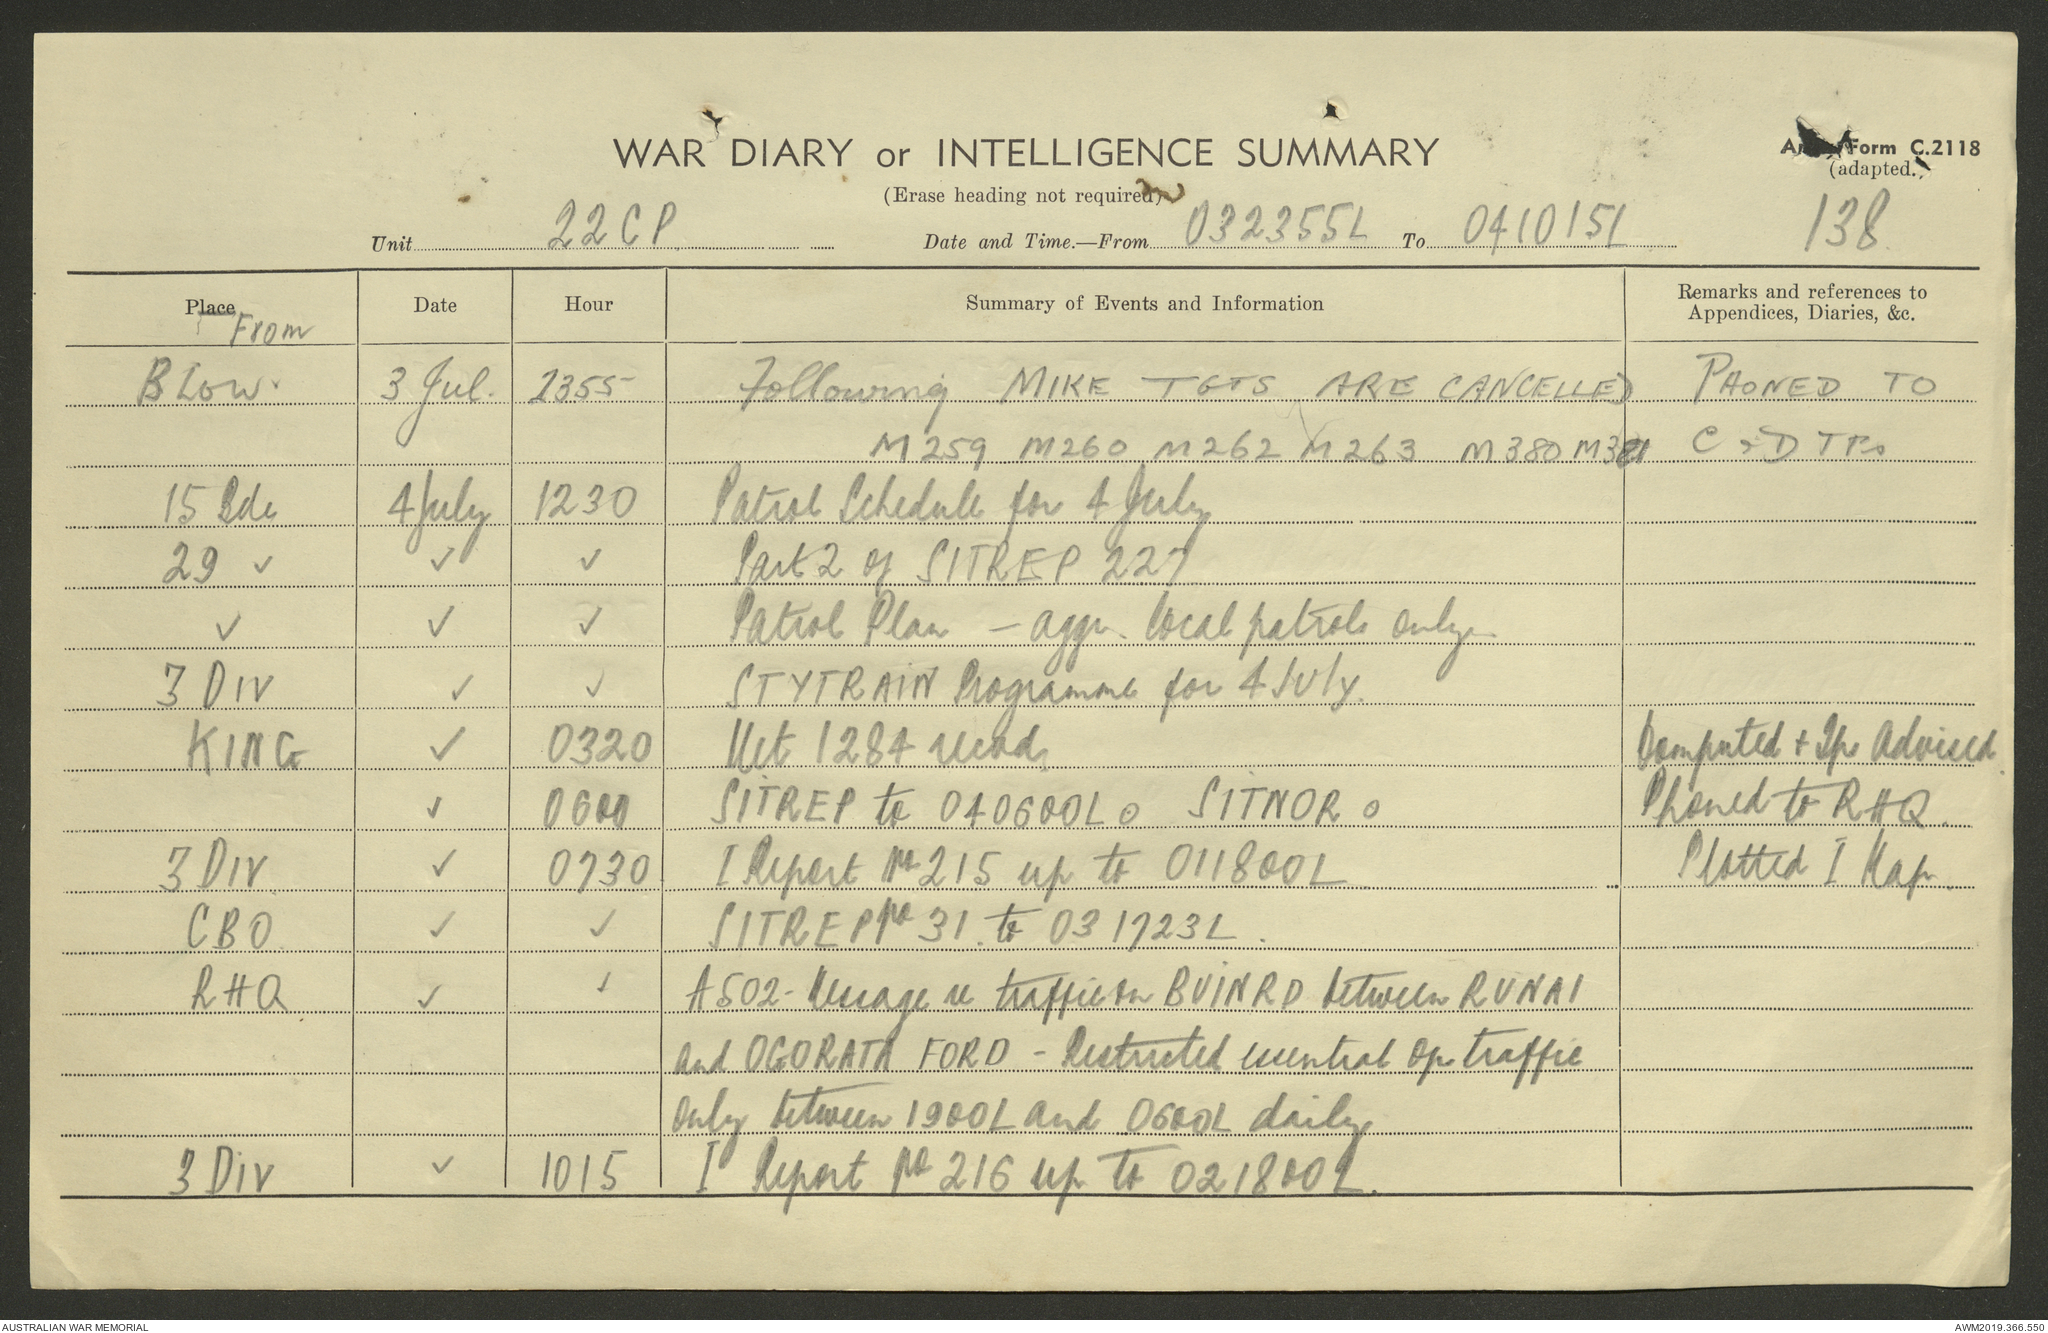 WAR DIARY or INTELLIGENCE SUMMARY
Army Form C.2118
(adapted.)
(Erase heading not required)
Unit 22 C P. Date and Time.—From 032355L To 041015L 138
Place From Date Hour Summary of Events and Information Remarks and references to Appendices, Diaries, &c.
B Low 3 Jul. 2355 Following MIKE TGTS ARE CANCELLED PHONED TO
M259 M260 M262 M263 M380 M381 C & D TPs
15 Bde 4 July 1230 Patrol Schedule for 4 July
29 ✓ ✓ ✓ Part 2 of SITREP 227
✓ ✓ ✓ Patrol Plan — aggr. local patrols only
3 DIV ✓ ✓ STYTRAIN Programme for 4 July.
KING ✓ 0320 1284 Computed + Advised.
✓ 0600 SITREP to 040600L o SITNOR o Phoned to RHQ.
3 DIV. ✓ 0730 I Report No 215 up to 011800L Plotted I Map.
CBO ✓ ✓ SITREP No 31 to 031723L.
RHQ ✓ ✓ A502 - Message re traffic on BUIN RD between RUNAI
and OGORATA FORD - Restricted essential op traffic
only between 1900L and 0600L daily
3 DIV ✓ 1015 I Report No 216 up to 021800L.
AUSTRALIAN WAR MEMORIAL
AWM2019.366.550